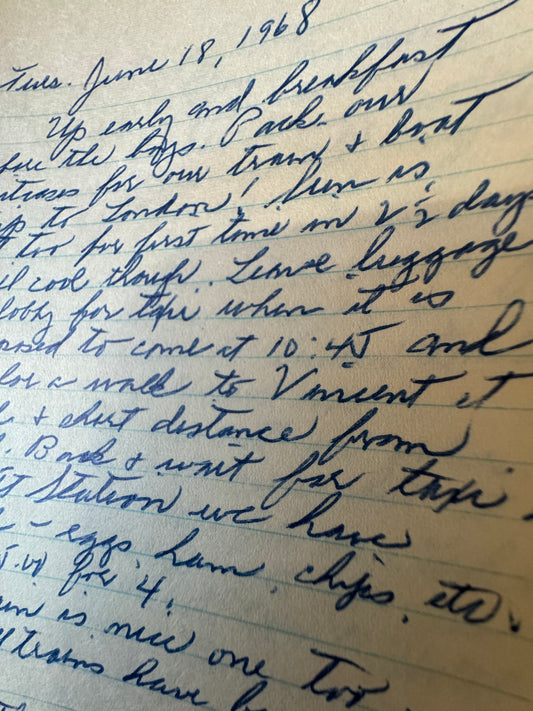 Tues. June 18, 1968
Up early and breakfast
the boys. Pack our
for our train & boat
to London! Sun is
too for first time in 2 ½ days
cool though. Leave luggage
for taxi when it is
to come at 10:45 and
for a walk to Vincent st
& short distance from
Back & wait for taxi.
Station we have
- eggs, ham, chips, etc.
for 4.
is nice one too
trains have